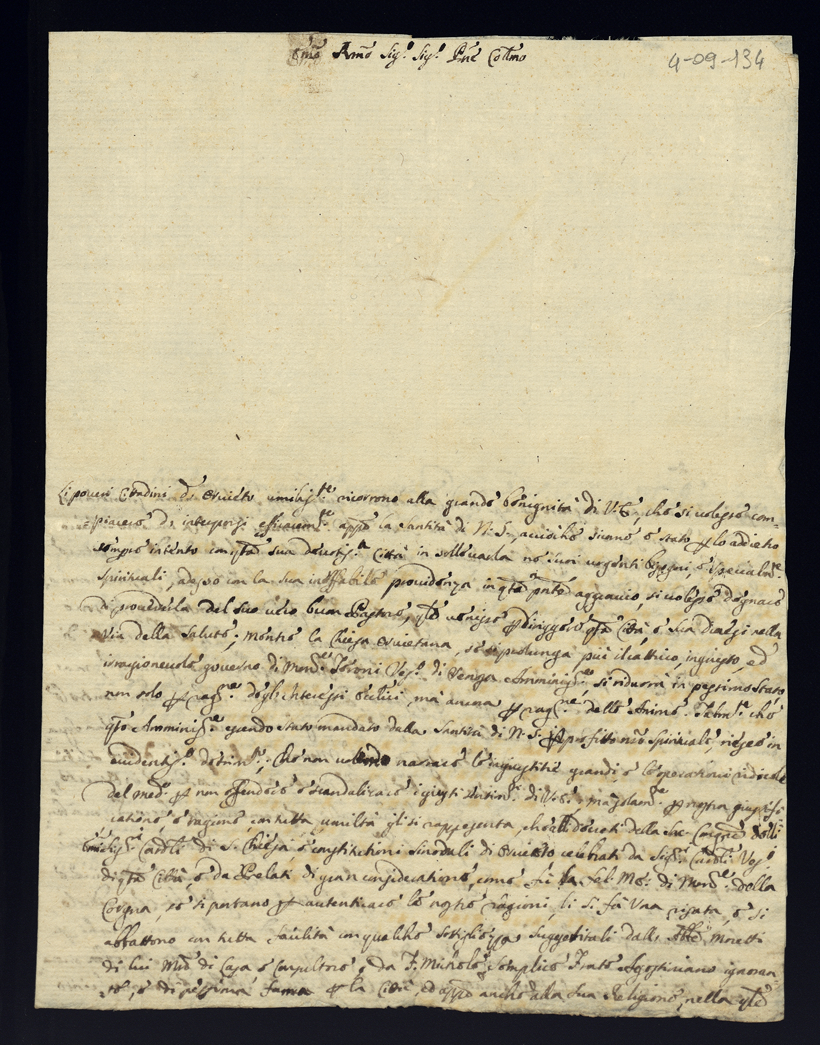 Emo Rmo Sigr. Sigr. Pne Collmo
4-09-134
Li poveri Cittadini di Orvieto umiliss.te ricorrono alla grande benignità di V.E., che si volesse com=
piacere d' interporsi efficacem.te appo la Santità di N. S., acciòche sicome è stato p lo addietro
sempre intento con qta sua devotiss.a Città in sollevarla ne suoi urgenti bisogni, e specialm.te
spirituali, adesso con la sua ineffabile providenza, in qto pnte aggravio, si volesse degnare
di provederla del suo vero buon Pastore, qle venisse p diriggere qta Città, e sua Diocesi nella
via della salute; mentre la Chiesa Orvietana, se si prolunga più il cattivo, ingiusto, ed
irragionevole governo di Mons.re Veso. di Amminis.re, si ridurrà in pessimo stato
non solo p rag.ne degl'Interessi civili, mà ancora p rag.ne delle Anime. Talm.te che
qto Amminis.re essendo stato mandato dalla Santità di N. S. p profitto nro spirituale, riesce in
evidentiss.o detrim.to; Che non volendo narrare le ingiustitie grandi e le operationi ridicole
del med.o p non offendere e scandalizare i giusti di V.E.; ma solam.te p nostra giustifi
catione, e ragione, con tutta umiltà gli si rappresenta, che alli decreti della Sac. Congne delli
Emi Cardli di S. Chiesa, e constitutioni sinodali di Orvieto celebrati da Sigri Cardli Vesi
di qta Città, e da Prelati di gran consideratione, come fù la fel. Mo. di Mons.re della
Corgna, se si portano p autenticare le nostre ragioni, li si fà una risata, e si
abbattono con tutta facilità con qualche suggeritali dall' Moretti
di lui Mro di Casa e Consultore, e da F. semplice Frate Agostiniano ignoran
te, e di pessima fama p la Città, ed appo anche alla sua Religione, nella qle